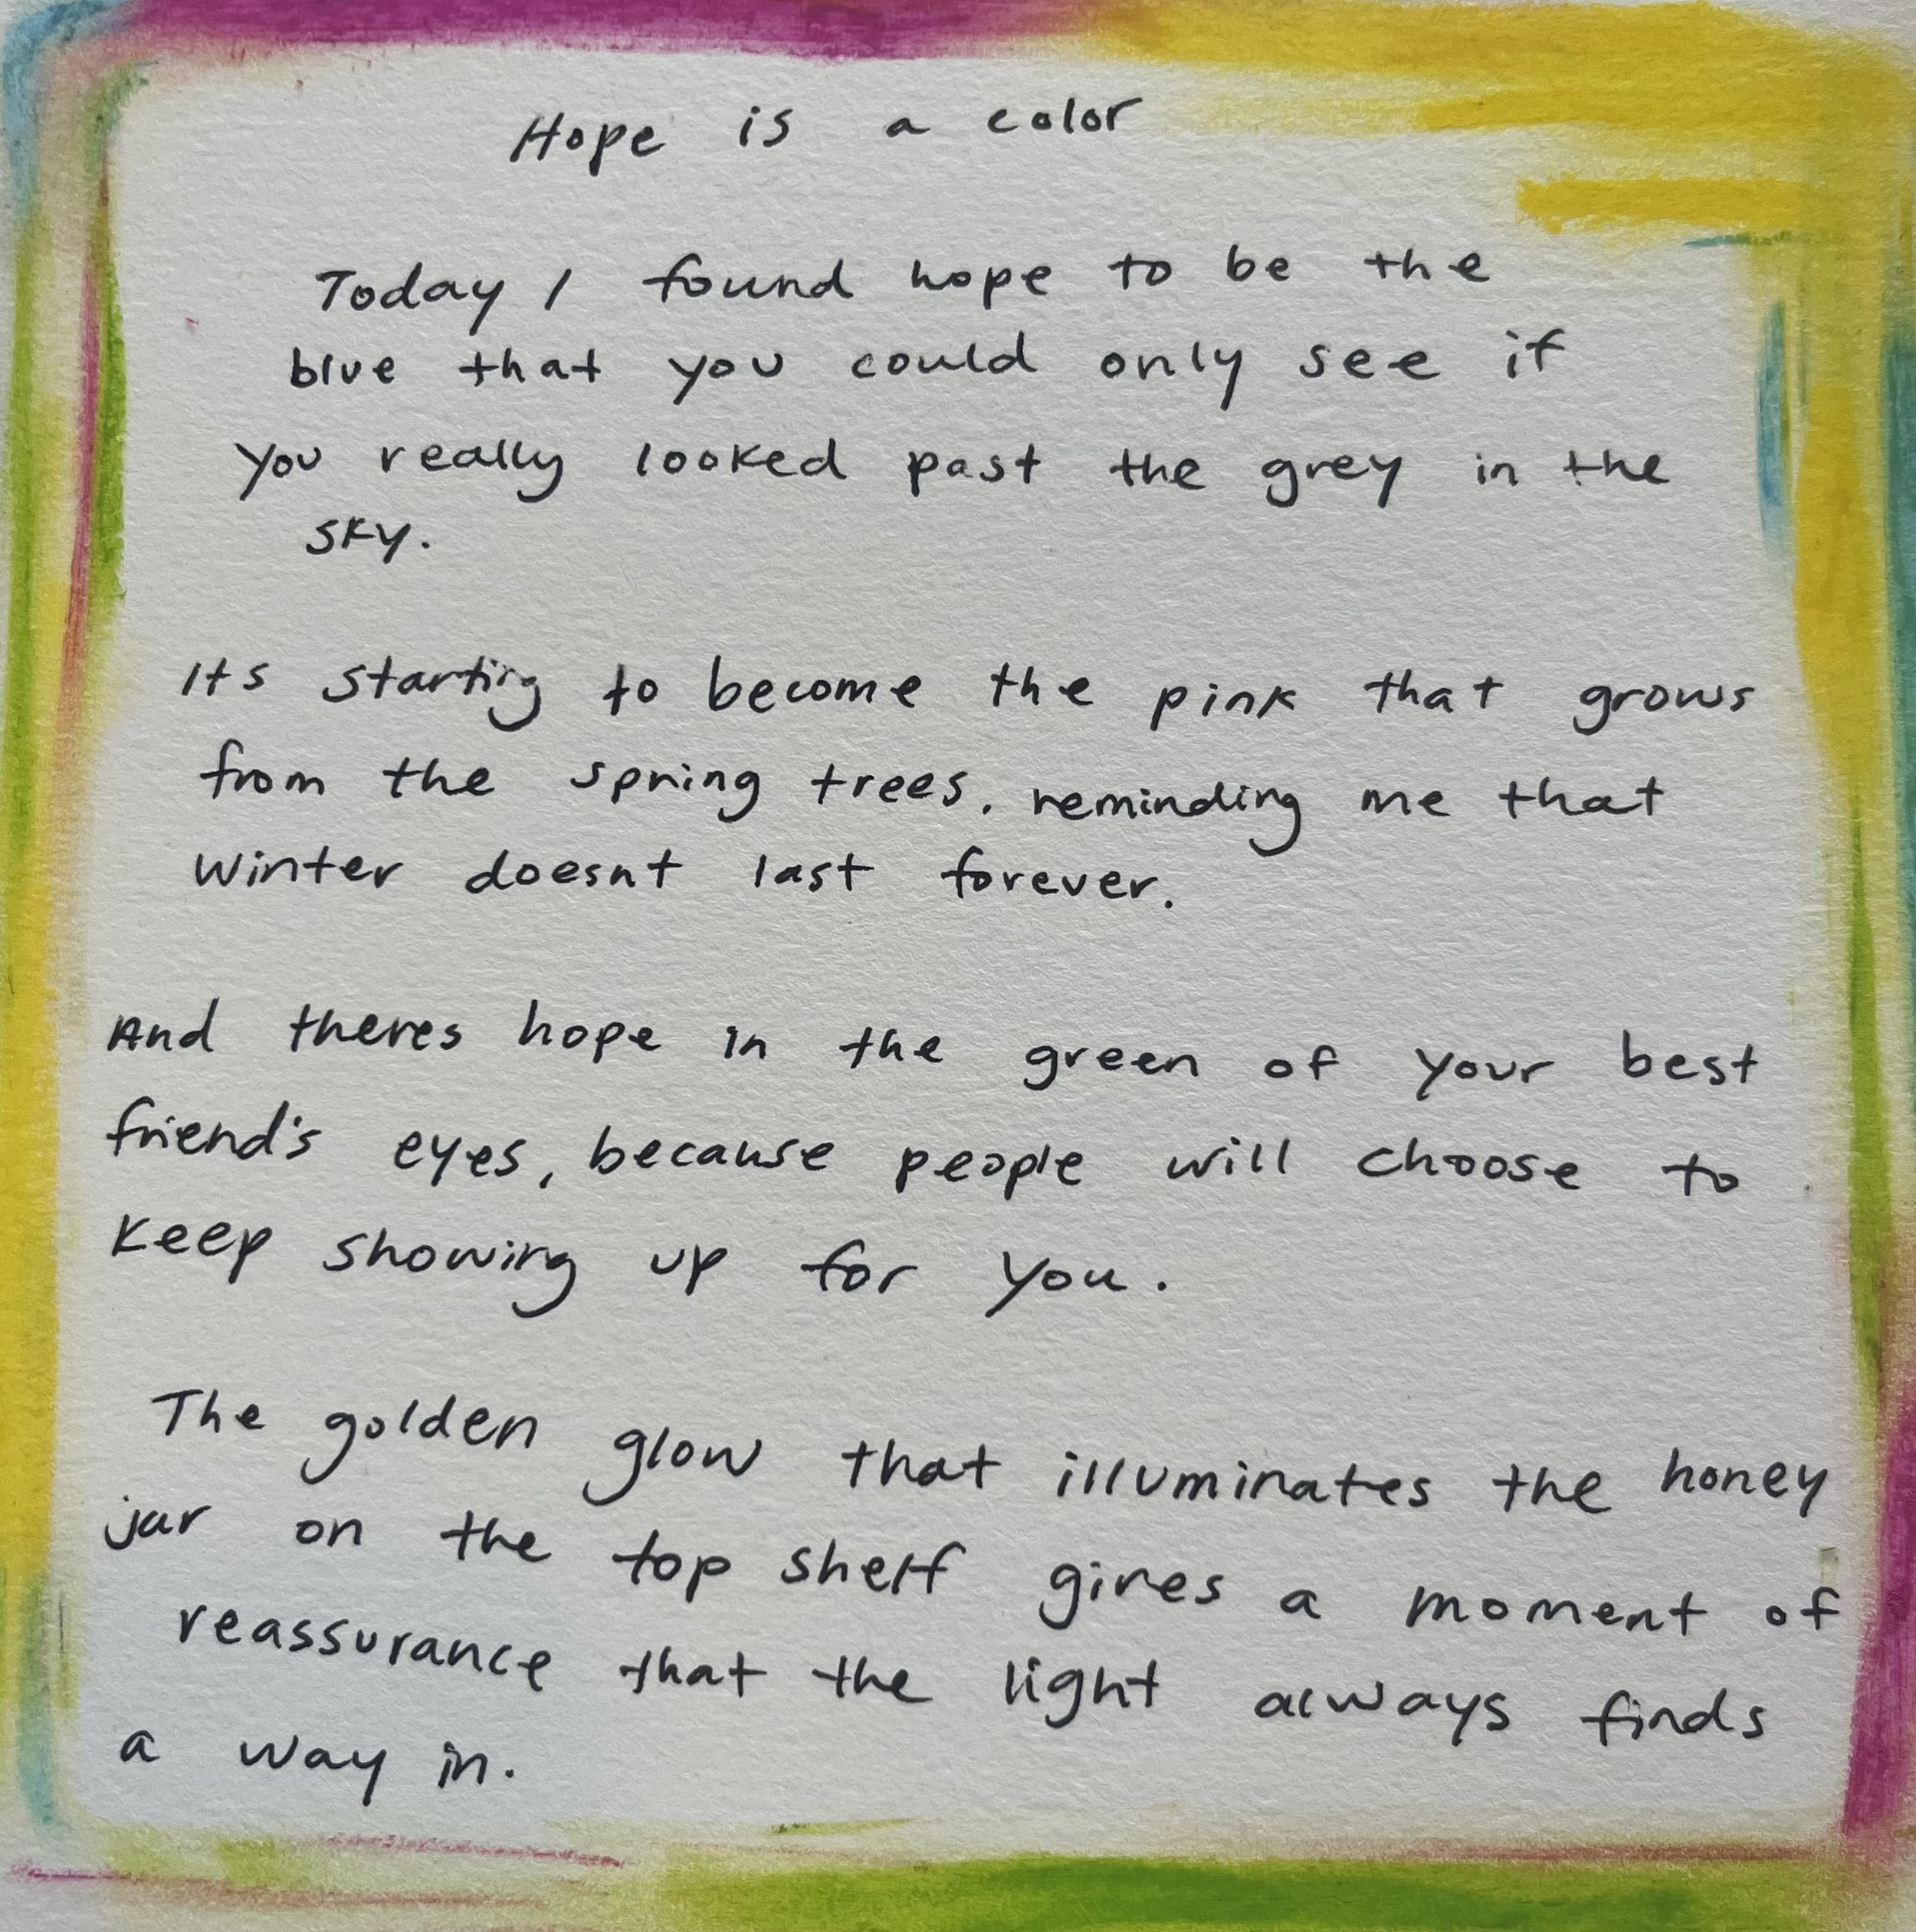 Hope is a color
Today I found hope to be the
blue that you could only see if
you really looked past the grey in the
sky.
Its starting to become the pink that grows
from the spring trees, reminding me that
winter doesnt last forever.
And theres hope in the green of your best
friend's eyes, because people will choose to
keep showing up for you.
The golden glow that illuminates the honey
jar on the top shelf gives a moment of
reassurance that the light always finds
a way in.